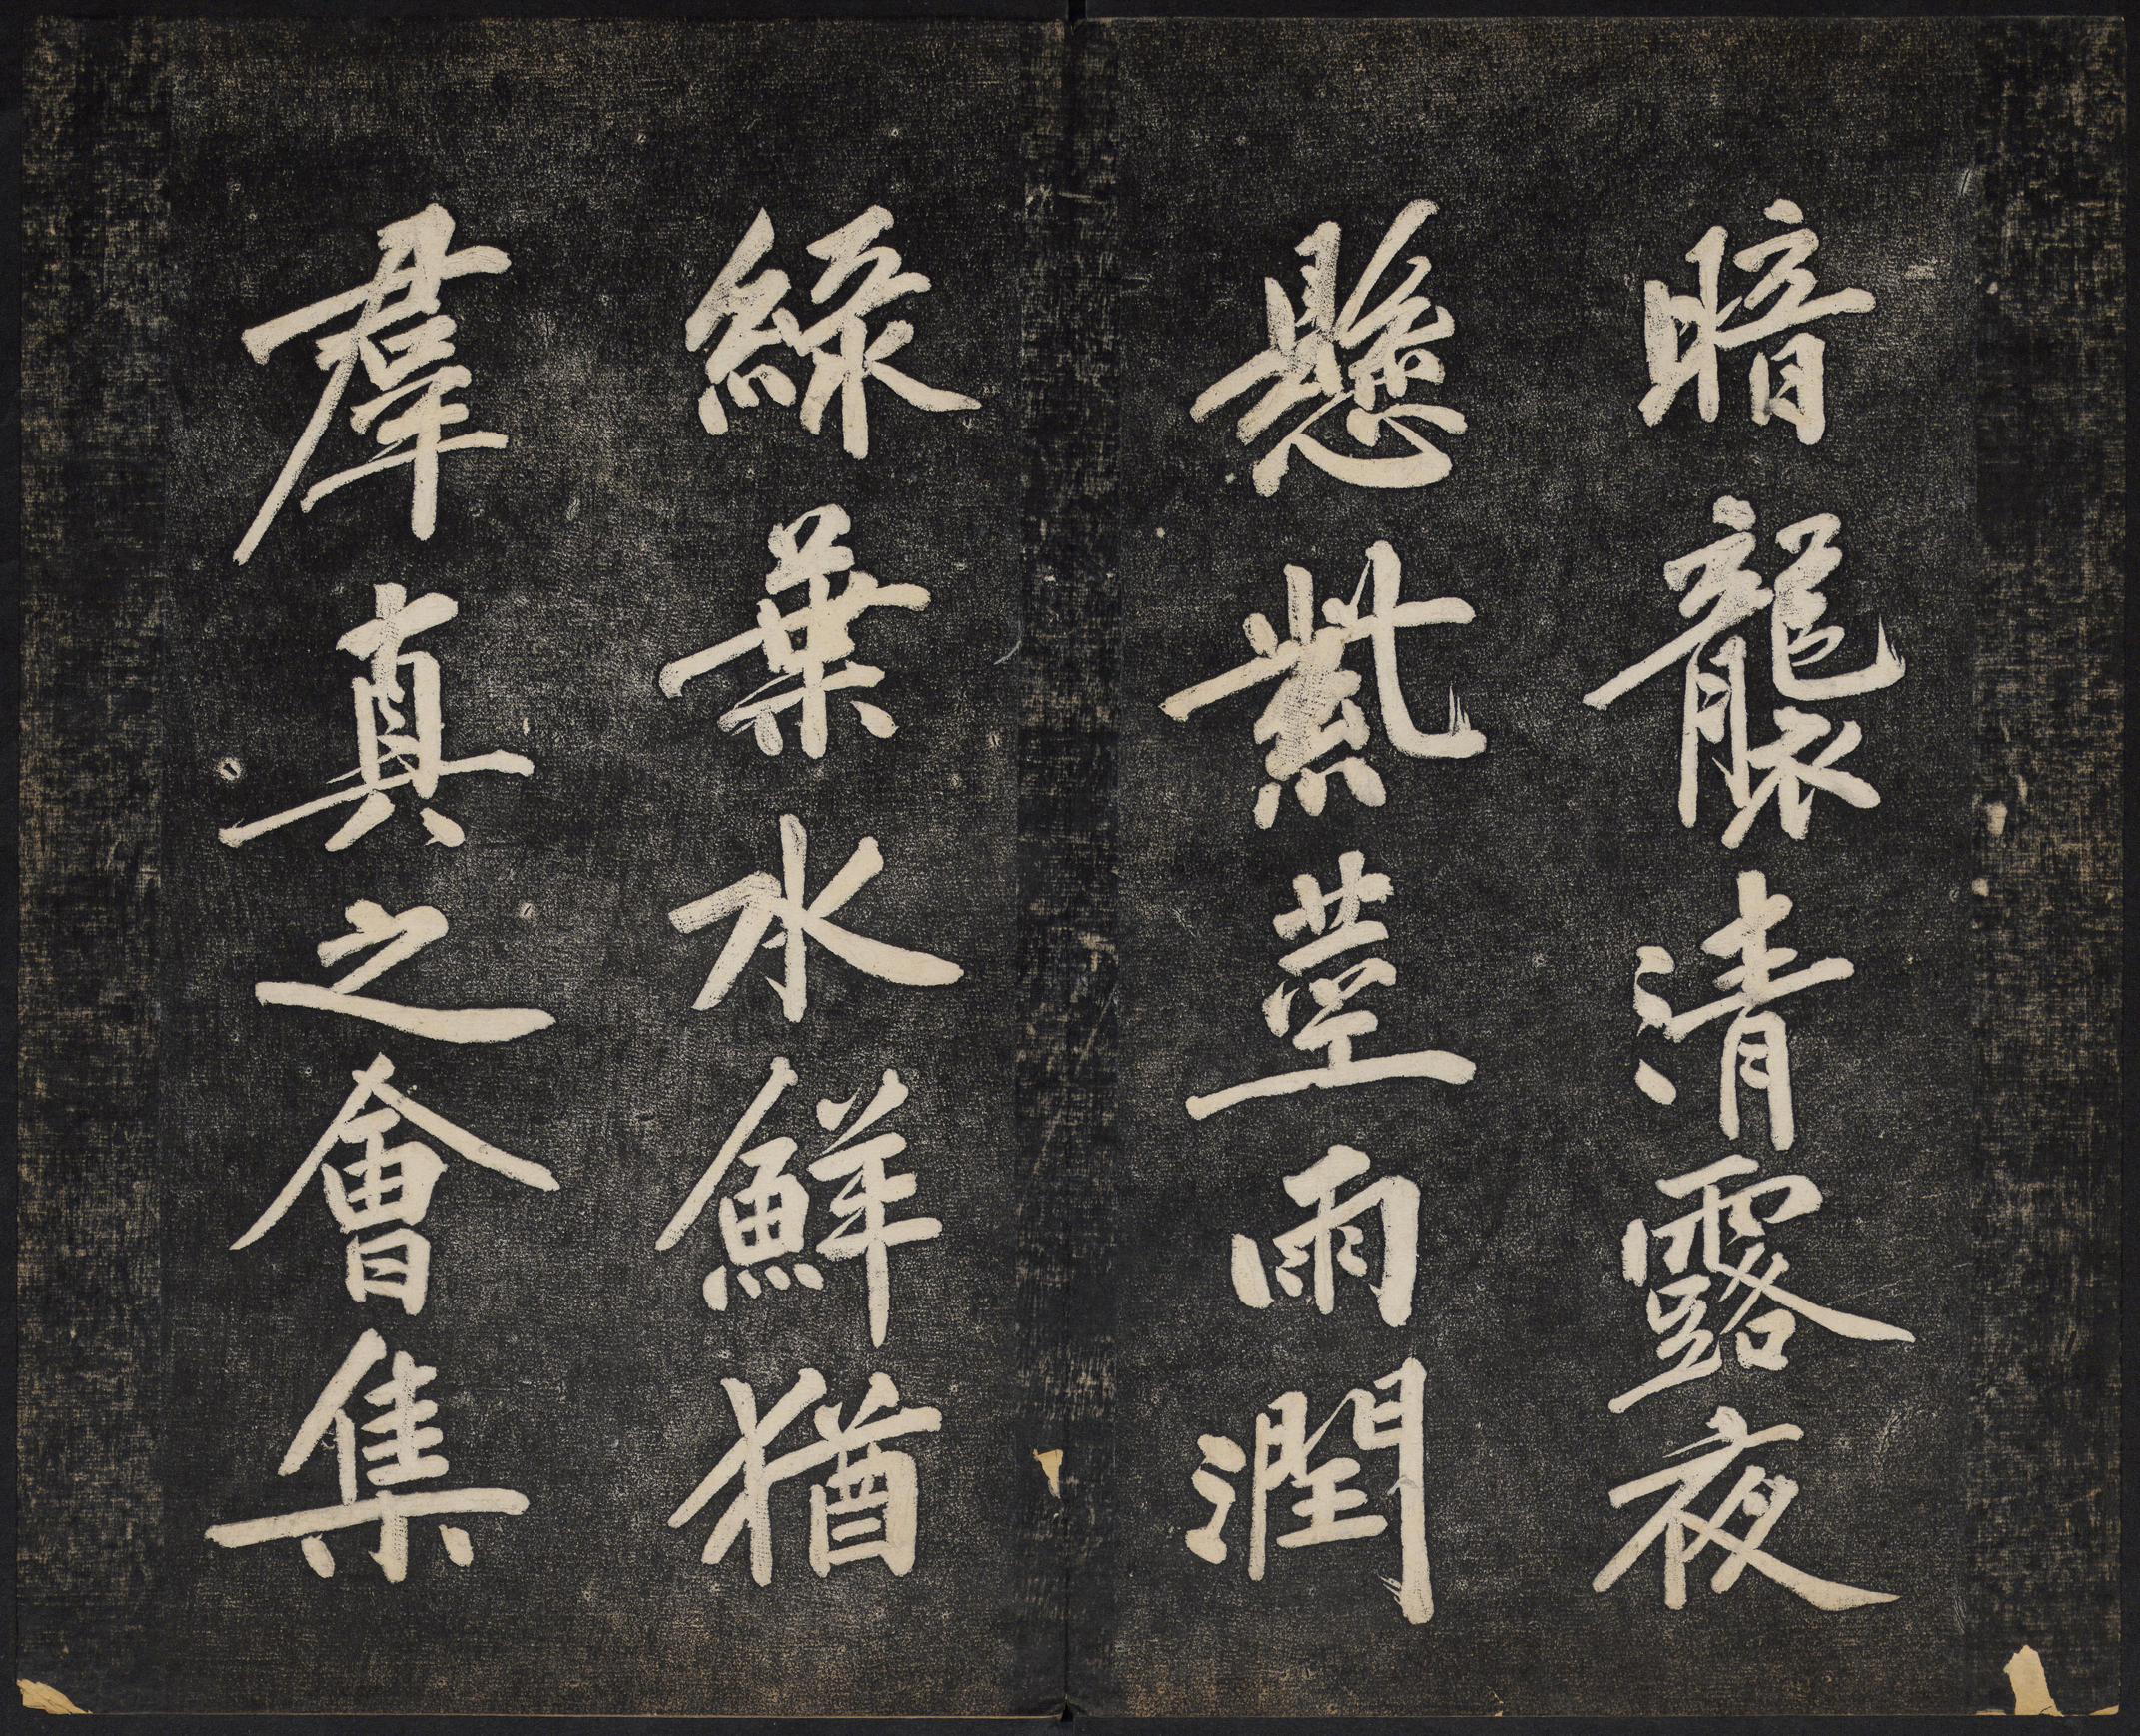 暗襲清露夜
懸紫莖雨潤
綠葉水鮮猶
羣真之會集